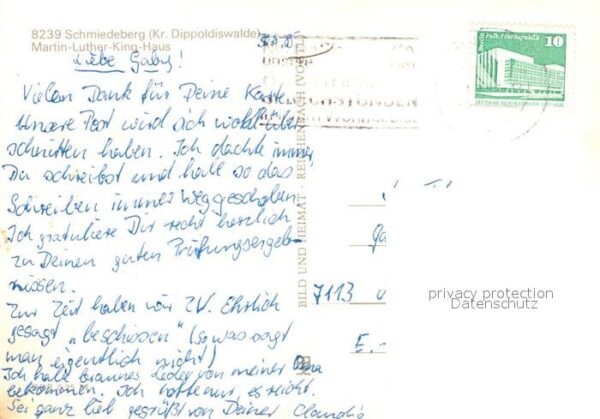 8239 Schmiedeberg (Kr. Dippoldiswalde)
Martin-Luther-King-Haus
Liebe Gaby!
Vielen Dank für Deine Karte.
Unsere Post wird sich wohl über-
schnitten haben. Ich dachte immer,
Du schreibst und habe so das
Schreiben immer weggeschoben.
Ich gratuliere Dir recht herzlich
zu Deinen guten Prüfungsergeb-
nissen.
Zur Zeit haben wir ZV. Ehrlich
gesagt „beschissen“ (sowas sagt
man eigentlich nicht)
Ich habe braunes Leder von meiner Oma
bekommen. Ich hoffe nur, es reicht.
Sei ganz lieb gegrüßt von Deiner Claudia
BILD UND HEIMAT · REICHENBACH (VOGTL)
10
7113
E.-
privacy protection
Datenschutz